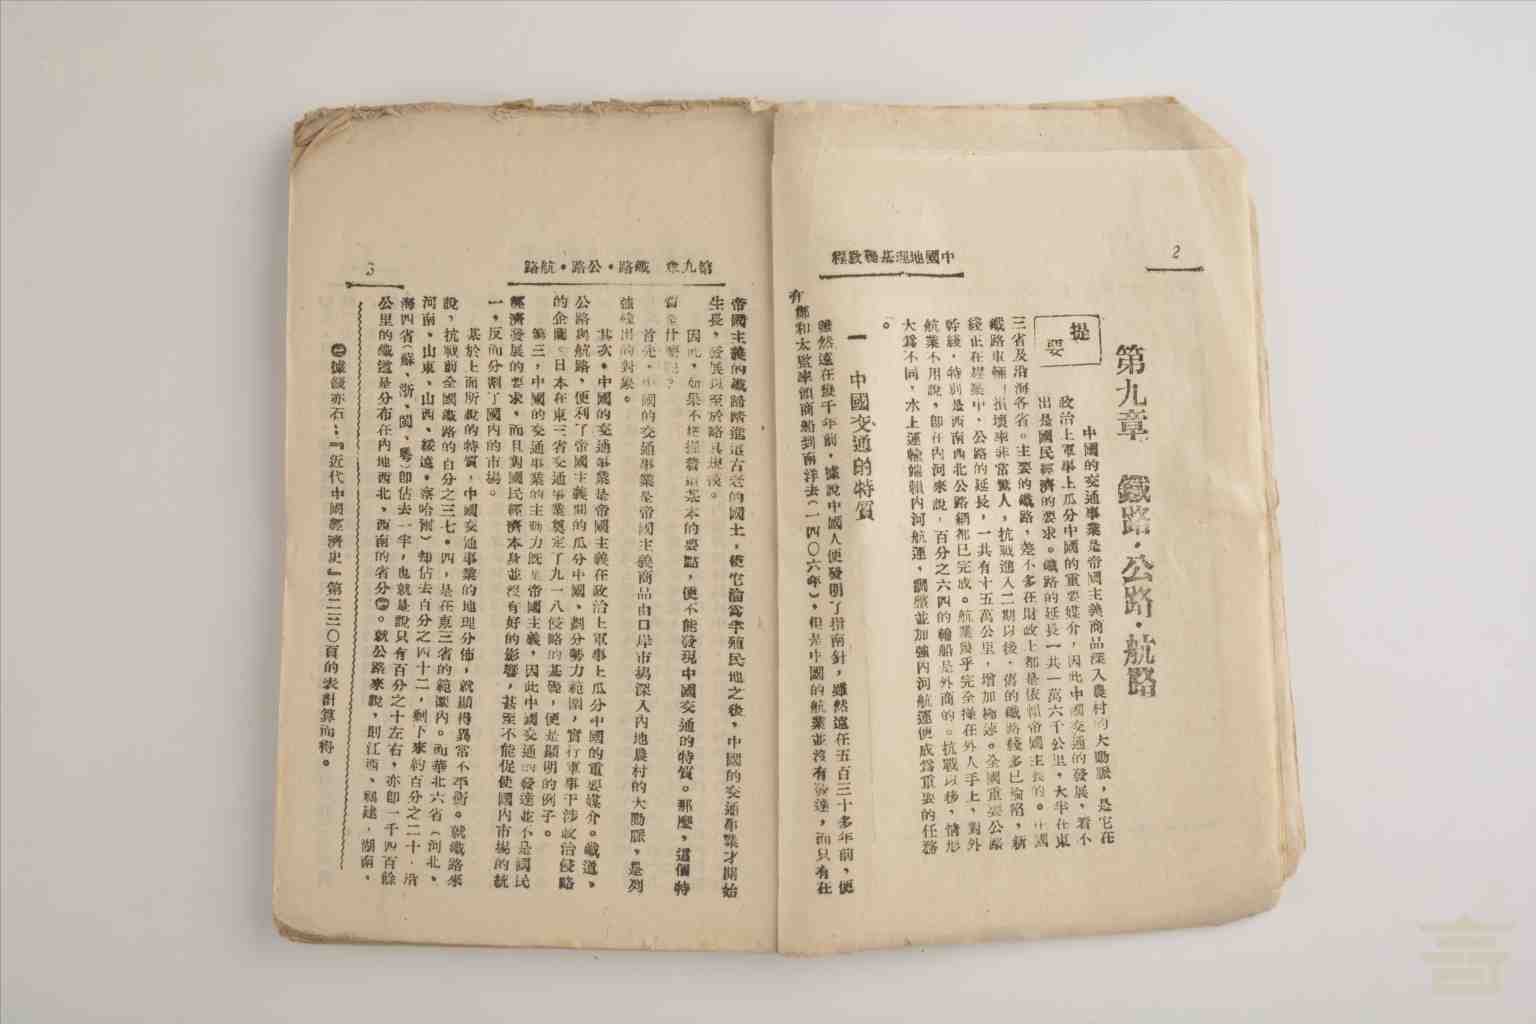 2
中國地理基礎教程
第九章　鐵路·公路·航路
提要
中國的交通事業是帝國主義商品深入農村的大動脈，是它在
政治上軍事上瓜分中國的重要媒介，因此中國交通的發展，看不
出是國民經濟的要求。鐵路的延長一共一萬六千公里，大半在東
三省及沿海各省。主要的鐵路，差不多在財政上都是依賴帝國主義的。中國
鐵路車輛損壞率非常驚人，抗戰進入二期以後，舊的鐵路綫多已淪陷，新
綫正在建築中，公路的延長，一共有十五萬公里，增加極速。全國重要公路
幹綫，特別是西南西北公路網都已完成。航業幾乎完全操在外人手上，對外
航業不用說，卽在內河來說，百分之六四的輪船是外商的。抗戰以後，情形
大爲不同，水上運輸端賴內河航運，調整並加強內河航運便成爲重要的任務
。
一　中國交通的特質
雖然遠在幾千年前，據說中國人便發明了指南針，雖然遠在五百三十多年前，便
有鄭和太監率領商船到南洋去（一四〇六年），但是中國的航業並沒有發達，而只有在
第九章　鐵路·公路·航路
3
帝國主義的鐵蹄踏進這古老的國土，使它淪爲半殖民地之後，中國的交通事業才開始
生長，發展以至於略具規模。
因此，如果不把握着這基本的要點，便不能發現中國交通的特質。那麼，這個特
質是什麼呢？
首先，中國的交通事業是帝國主義商品由口岸市場深入內地農村的大動脈，是列
強輸出的對象。
其次，中國的交通事業是帝國主義在政治上軍事上瓜分中國的重要媒介。鐵道，
公路與航路，便利了帝國主義間的瓜分中國，劃分勢力範圍，實行軍事干涉政治侵略
的企圖。日本在東三省交通事業奠定了九一八侵略的基礎，便是顯明的例子。
第三，中國的交通事業的主動力旣是帝國主義，因此中國交通的發達並不是國民
經濟發展的要求，而且對國民經濟本身並沒有好的影響，甚至不能促使國內市場的統
一，反而分割了國內的市場。
基於上面所說的特質，中國交通事業的地理分佈，就顯得異常不平衡。就鐵路來
說，抗戰前全國鐵路的百分之三七·四，是在東三省的範圍內。而華北六省（河北、
河南、山東、山西、綏遠、察哈爾）却佔去百分之四十二，剩下來約百分之二十，沿
海四省（蘇、浙、閩、粵）卽佔去一半，也就是說只有百分之十左右，亦卽一千四百餘
公里的鐵道是分布在內地西北，西南的省分㊀。就公路來說，則江西、福建，湖南，
㊀據錢亦石：『近代中國經濟史』第二三〇頁的表計算而得。